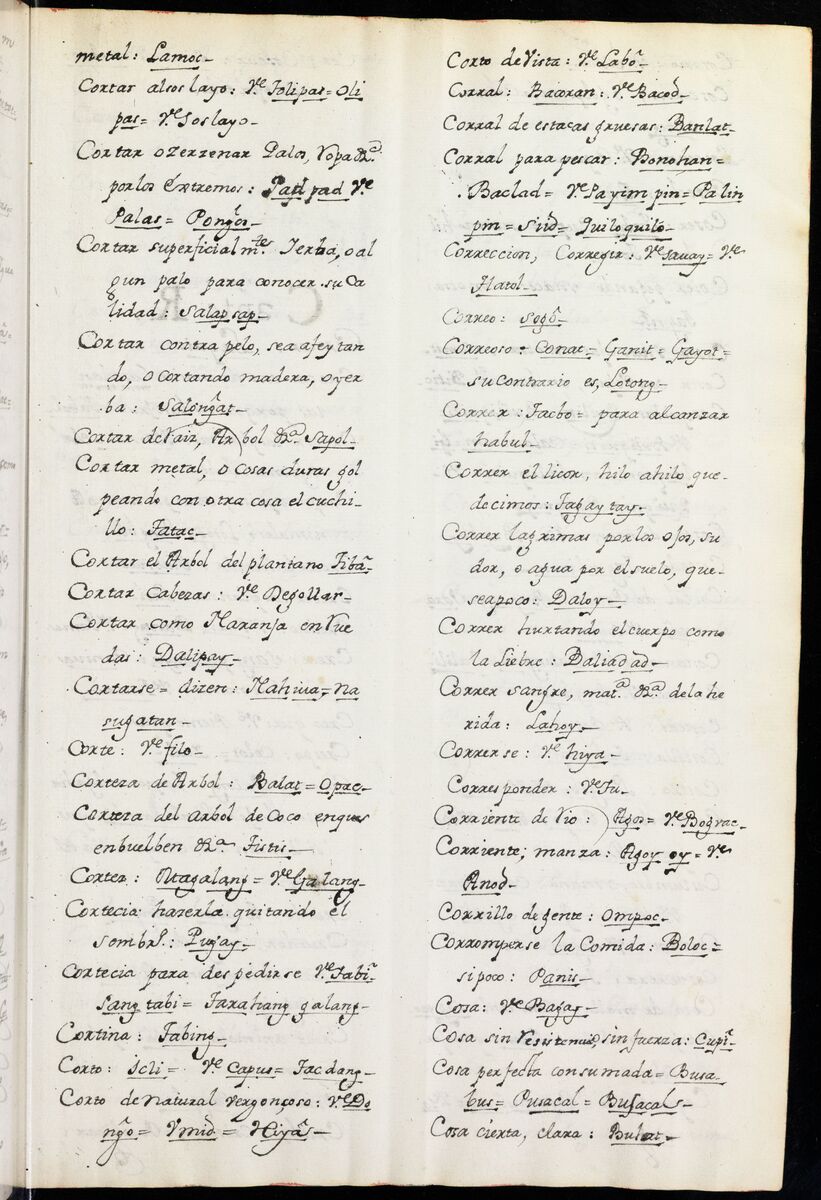 metal: Lamoc-
Cortar alsoslayo: Ve. Tolipas= Oli
pas= Ve Soslayo-
Cortar o Zerzenar Palos, Ropa &c.a
porlos extremos: Pagpad Ve
Palas= Pongos-
Cortar superficialmte. Yerba, o al
gun palo para conocer su Ca
lidad: Salapsap-
Cortar contra pelo, sea afeytan
do, o cortando madera, o yer
ba: Salongat-
Cortar de raiz, Arbol &a. Sapol-
Cortar metal, o cosas duras gol
peando con otra cosa el cuchi-
llo: Tatac-
Cortar el Arbol del plantano Tiba-
Cortar Cabezas: Ve. Degollar-
Cortar como Naranja en rue
das: Dalipay-
Cortarse= dizen: Nahiwa= na
sugatan-
Corte: Ve filo-
Corteza de Arbol: Balat= Opac-
Corteza del arbol de Coco en que
enbuelben &a. Tistis-
Cortes: Magalang= Ve Galang-
Cortecia hazerla quitando el
sombr.: Pugay-
Cortecia para despedirse Ve Tabi
Sang tabi= Tarahang galang-
Cortina: Tabing-
Corto: Icli= Ve Capus= Tacdang-
Corto de natural vergonçoso: Ve Do
ngo= Vmid= Hiya-
Corto de Vista: Ve Labo
Corral: Bacoran: Ve Bacod-
Corral de estacas gruesas: Banlat-
Corral para pescar: Bonohan=
Baclad= Ve Payimpin= Palin
pin= Sud= Quiloquilo-
Correccion, Corregir: Ve saway= Ve
Hatol-
Correo: sogo-
Correoso: Conat= Ganit= Gayot=
su contrario es, Lotong-
Correr: Tacbo= para alcanzar
habul-
Correr el licor, hilo ahilo que-
decimos: Tagaytay-
Correr lagrimas porlos ojos, su
dor, o agua por el suelo, que-
sea poco: Daloy-
Correr hurtando el cuerpo como
la Liebre: Baliadad-
Correr sangre, mat.a &a. de la he
rida: Lahoy-
Correrse: Ve hiya-
Corresponder: Ve Tu-
Corriente de rio: Agos= Ve Bogvac-
Corriente, manza: Agoy oy= Ve
Anod-
Corrillo de gente: Ompoc-
Corromperse la Comida: Boloc=
si poco: Panis-
Cosa: Ve Bagay-
Cosa sin resistencia, sin fuerza: Cupi-
Cosa perfecta consumada= Busa
bus= Pusacal= Busacal-
Cosa cierta, clara: Bulat-